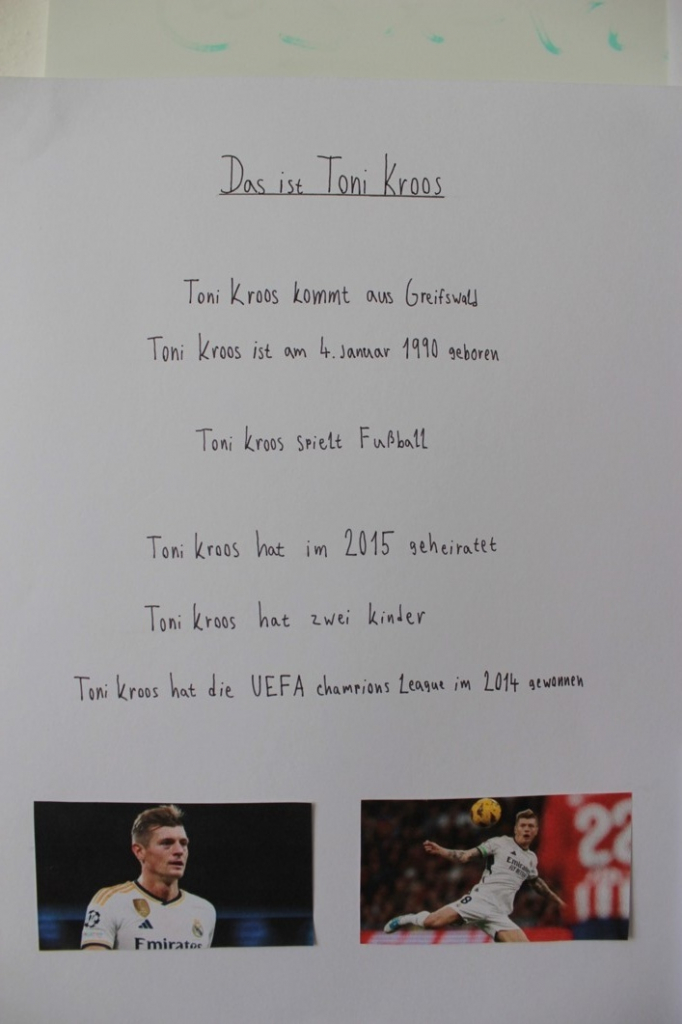 Das ist Toni Kroos
Toni Kroos kommt aus Greifswald
Toni Kroos ist am 4. Januar 1990 geboren
Toni Kroos spielt Fußball
Toni Kroos hat im 2015 geheiratet
Toni Kroos hat zwei kinder
Toni Kroos hat die UEFA champions League im 2014 gewonnen
Emirates
22
8